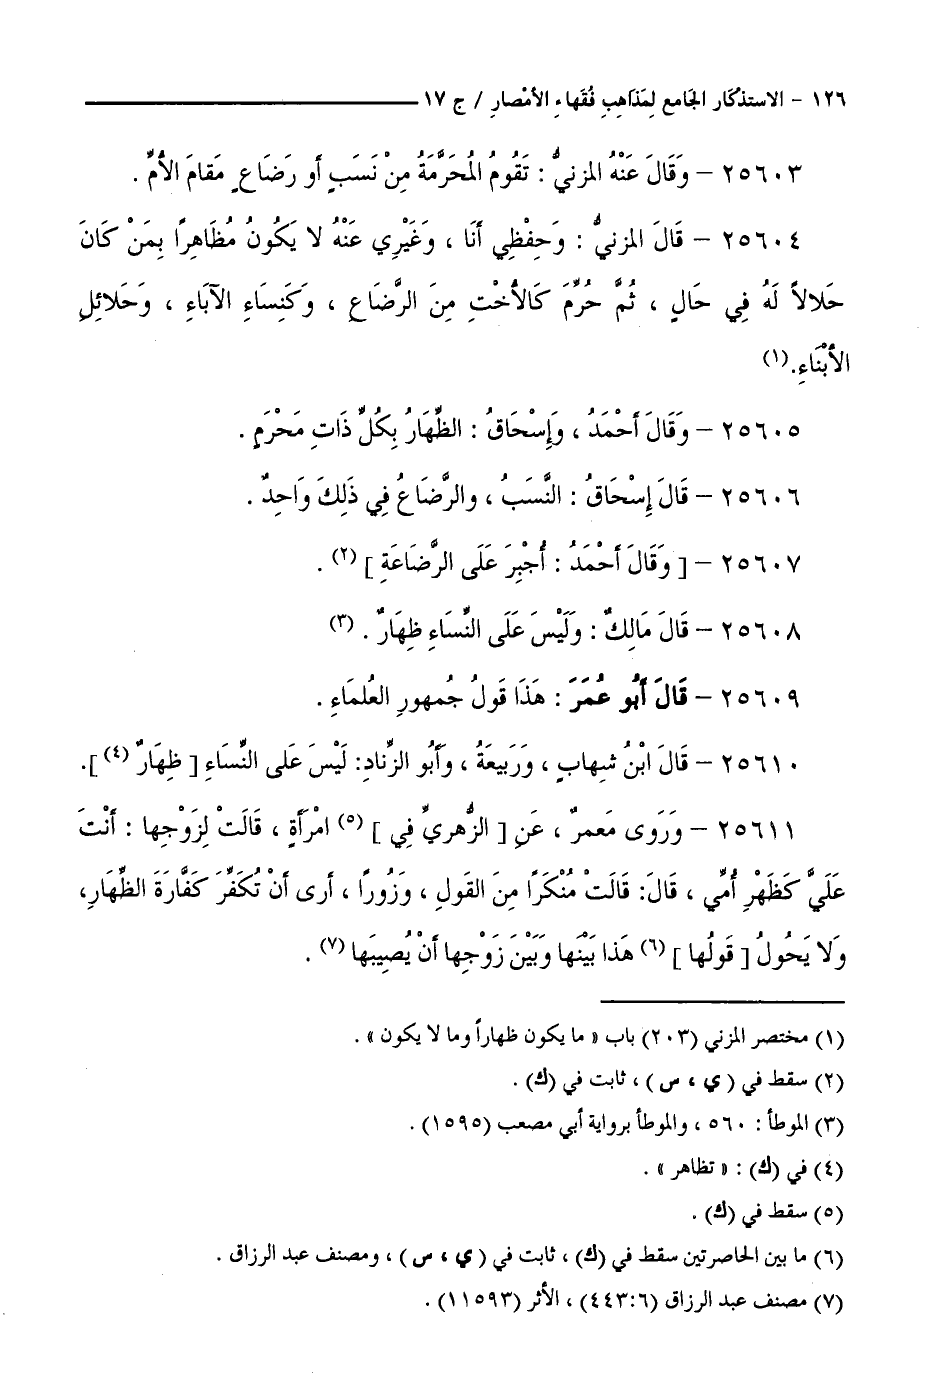 ١٢٦ - الاستذكار الجامع لمذاهب فُقهاء الأمْصار / ج ١٧
٢٥٦٠٣ – وَقَالَ عَنْهُ المزنيُّ : تَقُومُ المُحَرَّمَةُ مِنْ نَسَبٍ أو رَضَاعٍ مَقامَ الأُمِّ .
٢٥٦٠٤ – قَالَ المزنيُّ : وَحِفْظِي أَنَا ، وَغَيْرِي عَنْهُ لا يَكُونُ مُظَاهِرًا بِمَنْ كَانَ
حَلالاً لَهُ فِي حَالٍ ، ثُمَّ حُرِّمَ كَالأُخْتِ مِنَ الرَّضَاعِ ، وَكَنِسَاءِ الآبَاءِ ، وَحَلائِلِ
الأَبْنَاءِ.(١)
٢٥٦٠٥ – وَقَالَ أَحْمَدُ ، وَإِسْحَاقُ : الظِّهَارُ بِكُلِّ ذَاتِ مَحْرَمٍ .
٢٥٦٠٦ – قَالَ إِسْحَاقُ : النَّسَبُ ، والرَّضَاعُ فِي ذَلِكَ وَاحِدٌ .
٢٥٦٠٧ – [ وَقَالَ أَحْمَدُ : أَجْبِرَ عَلَى الرَّضَاعَةِ ] (٢) .
٢٥٦٠٨ – قَالَ مَالِكٌ : وَلَيْسَ عَلَى النِّسَاءِ ظِهَارٌ . (٣)
٢٥٦٠٩ – قَالَ أَبُو عُمَرَ : هَذَا قَولُ جُمهورِ العُلمَاءِ .
٢٥٦١٠ – قَالَ ابْنُ شِهابٍ ، وَرَبِيعَةُ ، وَأَبُو الزِّنادِ: لَيْسَ عَلى النِّسَاءِ [ ظِهَارٌ (٤) ].
٢٥٦١١ – وَرَوى مَعمرٌ ، عَنِ [ الزُّهريِّ فِي ] (٥) امْرَأَةٍ ، قَالَتْ لِزَوْجِها : أَنْتَ
عَلَيَّ كَظَهْرِ أُمِّي ، قَالَ: قَالَتْ مُنْكَرًا مِنَ القَولِ ، وَزُورًا ، أَرى أَنْ تُكَفِّرَ كَفَّارَةَ الظِّهَارِ،
وَلا يَحُولُ [ قَولُها ] (٦) هَذا بَيْنَها وَبَيْنَ زَوْجِها أَنْ يُصِيبَها (٧) .
(١) مختصر المزني (٢٠٣) باب « ما يكون ظهاراً وما لا يكون » .
(٢) سقط في ( ي ، س ) ، ثابت في (ك) .
(٣) الموطأ : ٥٦٠ ، والموطأ برواية أبي مصعب (١٥٩٥) .
(٤) في (ك) : « تظاهر » .
(٥) سقط في (ك) .
(٦) ما بين الحاصرتين سقط في (ك) ، ثابت في ( ي ، س ) ، ومصنف عبد الرزاق .
(٧) مصنف عبد الرزاق (٤٤٣:٦) ، الأثر (١١٥٩٣) .